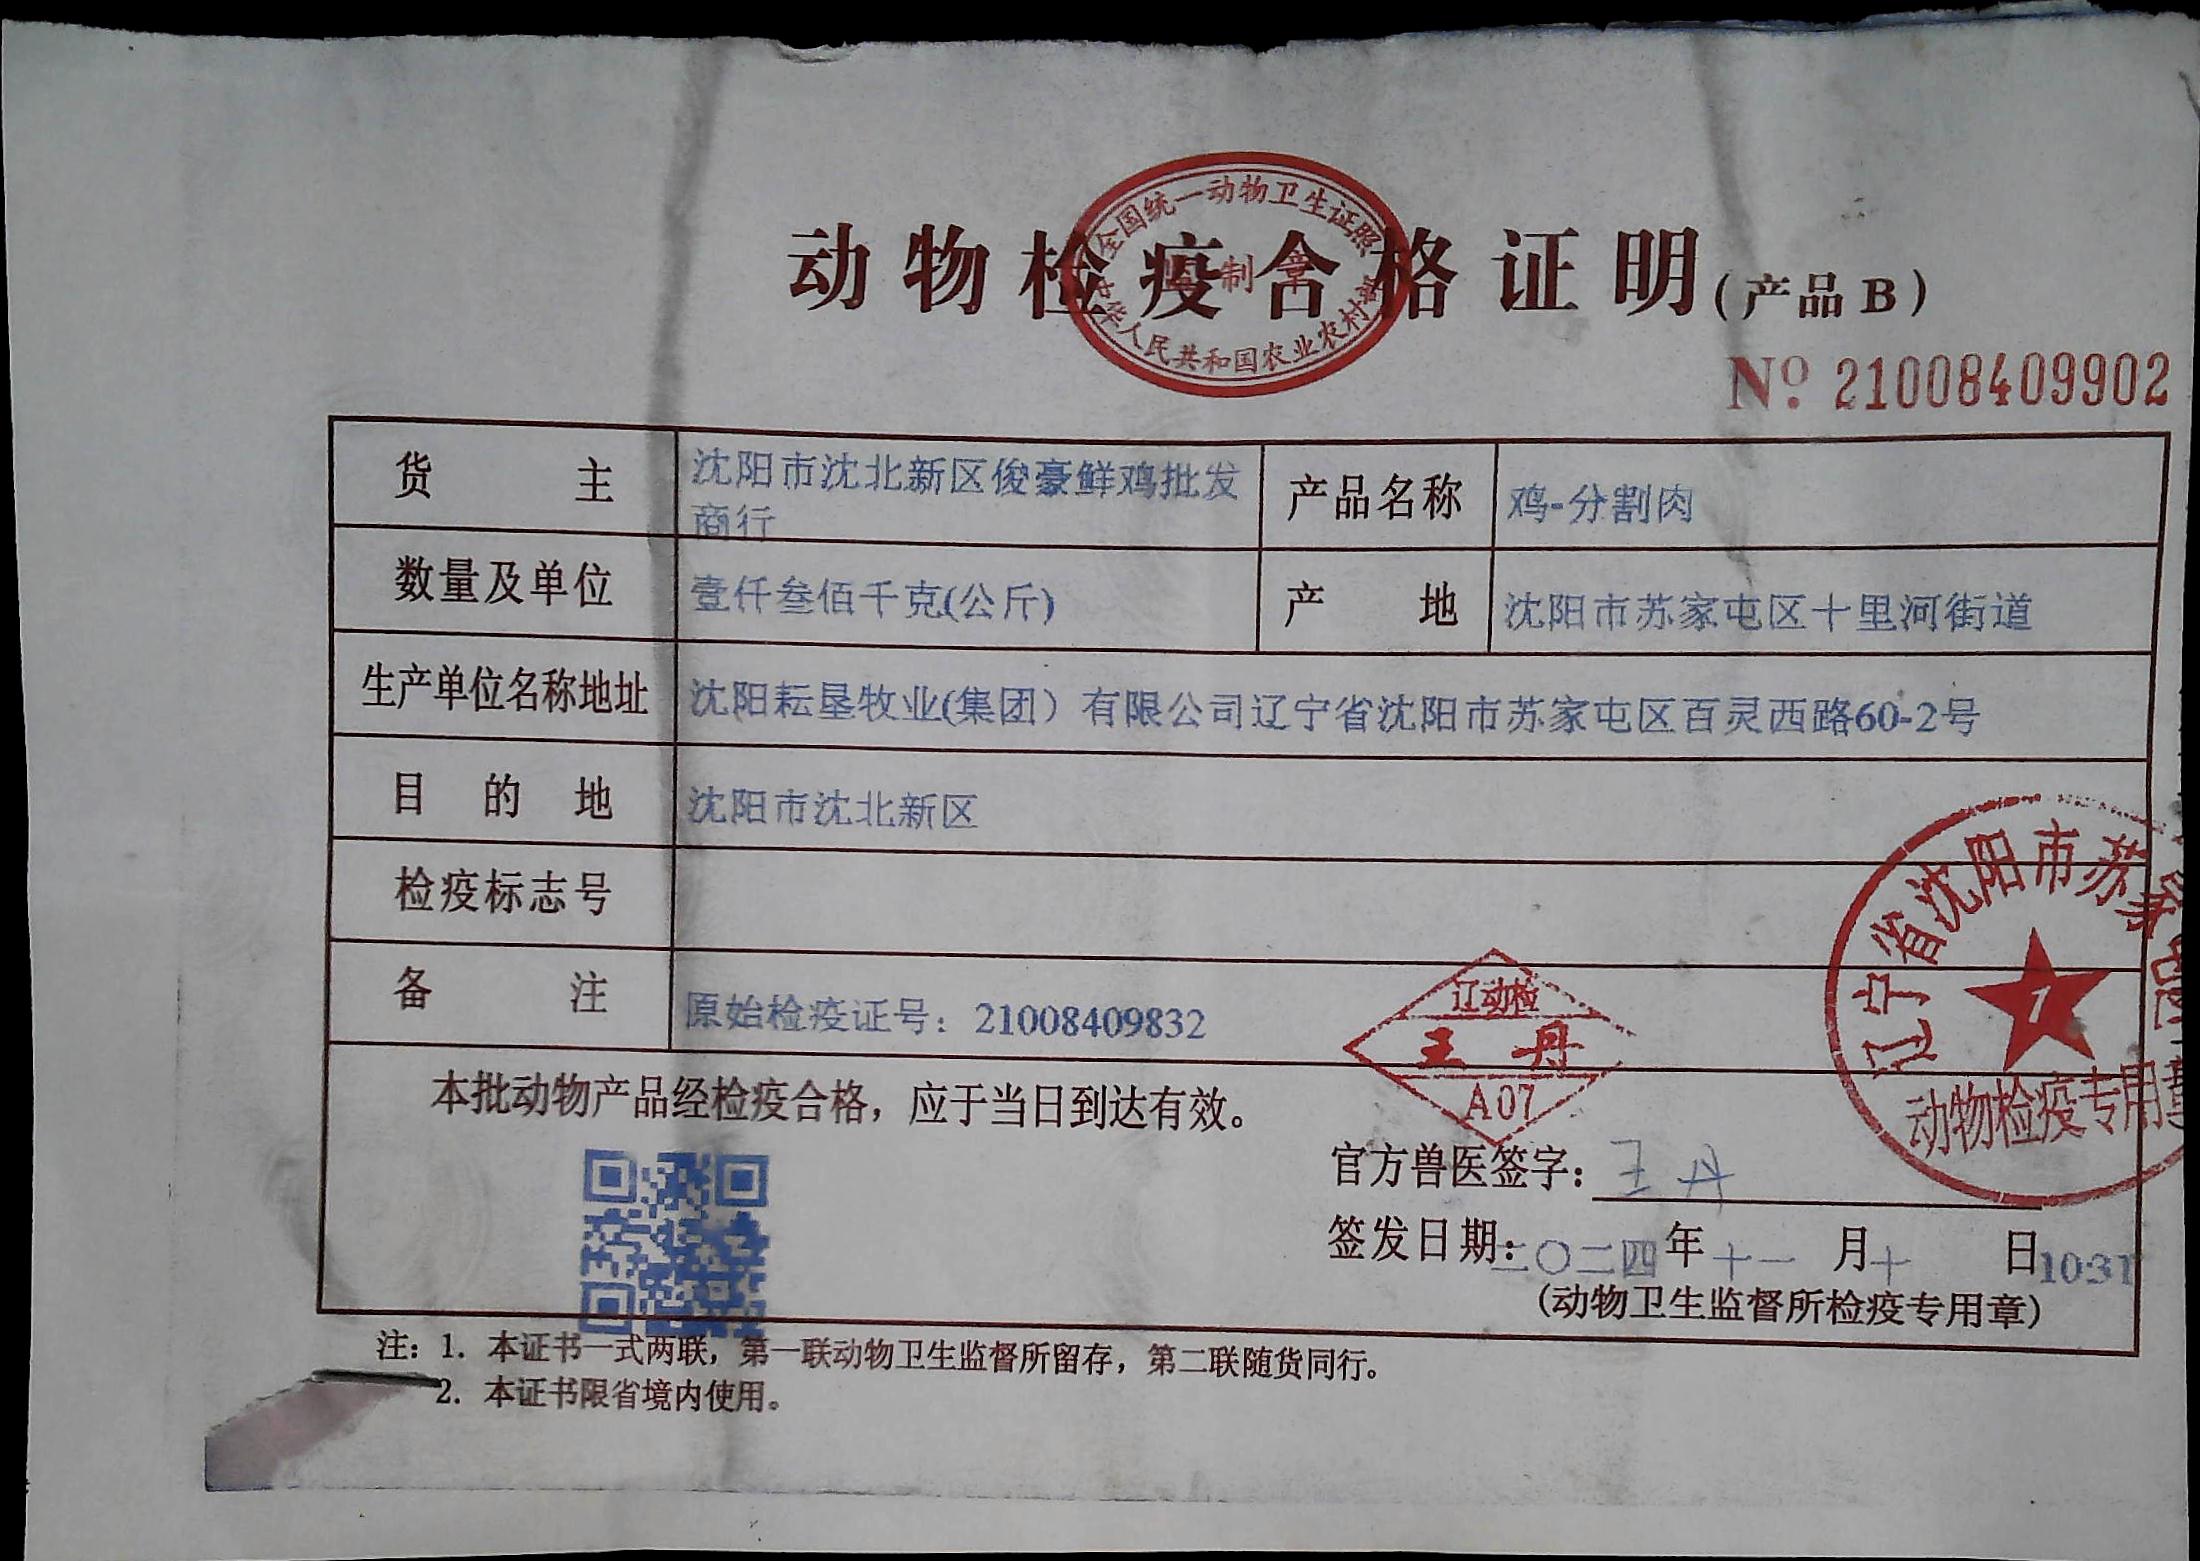 动物检疫合格证明(产品B)
全国统一动物卫生证照
监制章
中华人民共和国农业农村部
№ 21008409902
货主 沈阳市沈北新区俊豪鲜鸡批发
商行
产品名称 鸡-分割肉
数量及单位 壹仟叁佰千克(公斤)
产地 沈阳市苏家屯区十里河街道
生产单位名称地址 沈阳耘垦牧业(集团）有限公司辽宁省沈阳市苏家屯区百灵西路60-2号
目的地 沈阳市沈北新区
检疫标志号
备注 原始检疫证号：21008409832
辽动检
王丹
A07
辽宁省沈阳市苏家屯区
1
动物检疫专用章
本批动物产品经检疫合格，应于当日到达有效。
官方兽医签字：王丹
签发日期：二〇二四年十一月十日10:31
(动物卫生监督所检疫专用章)
注：1. 本证书一式两联，第一联动物卫生监督所留存，第二联随货同行。
2. 本证书限省境内使用。